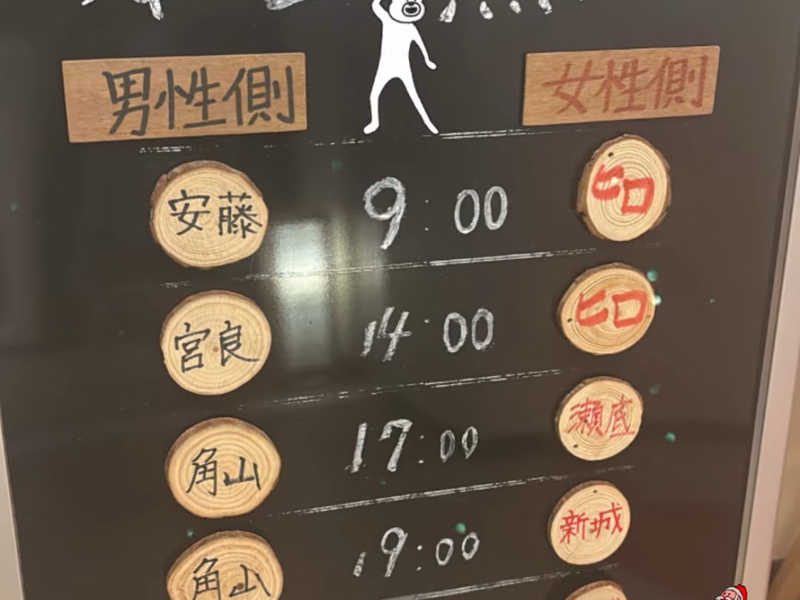 男性側 女性側
安藤 9:00 ヒロ
宮良 14:00 ヒロ
角山 17:00 瀬底
角山 19:00 新城